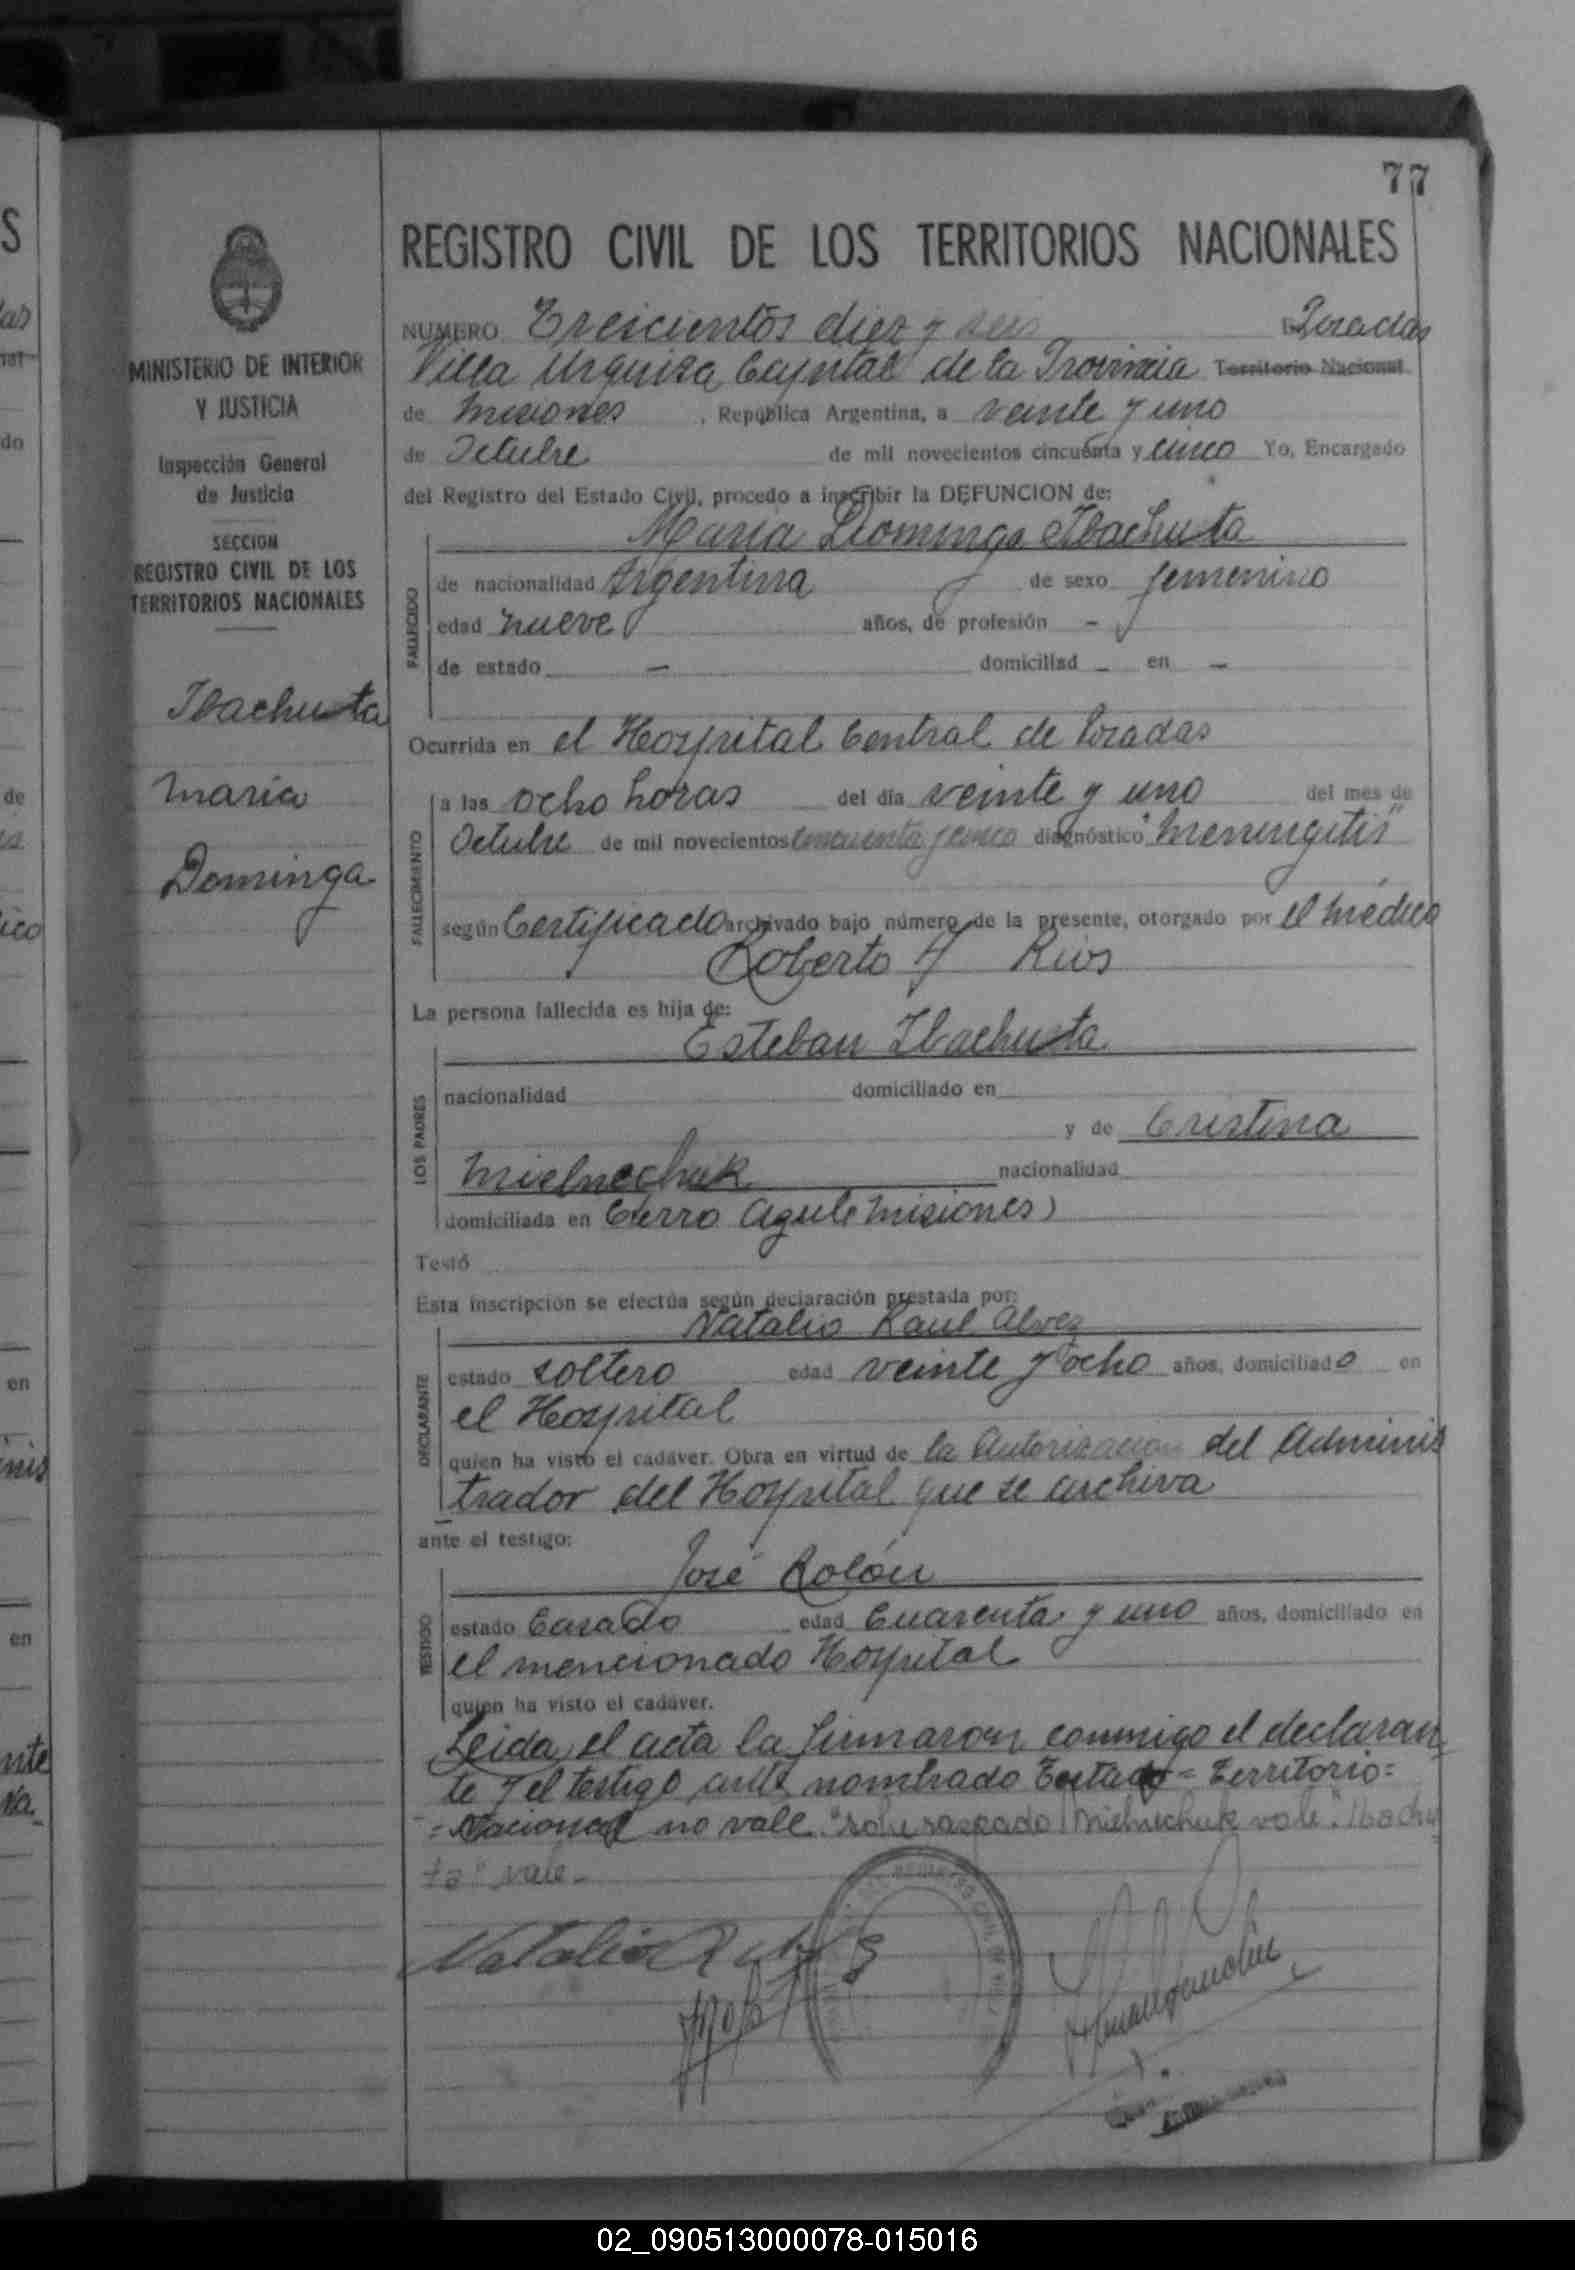 77
REGISTRO CIVIL DE LOS TERRITORIOS NACIONALES
MINISTERIO DE INTERIOR
Y JUSTICIA
Inspección General
de Justicia
SECCION
REGISTRO CIVIL DE LOS
TERRITORIOS NACIONALES
Ibachuta
María
Dominga
NUMERO Treicientos diez y seis Posadas
Villa Urquiza Capital de la Provincia Territorio Nacional
de Misiones, República Argentina, a veinte y uno
de Octubre de mil novecientos cincuenta y cinco Yo, Encargado
del Registro del Estado Civil, procedo a inscribir la DEFUNCION de:
María Dominga Ibachuta
FALLECIDO
de nacionalidad Argentina de sexo femenino
edad nueve años, de profesión -
de estado - domiciliad - en -
Ocurrida en el Hospital Central de Posadas
FALLECIMIENTO
a las ocho horas del día veinte y uno del mes de
Octubre de mil novecientos cincuenta y cinco diagnóstico "Meningitis"
según Certificado archivado bajo número de la presente, otorgado por el médico
Roberto Rios
La persona fallecida es hija de:
Esteban Ibachuta
LOS PADRES
nacionalidad domiciliado en
y de Cristina
Mielnechuk nacionalidad
domiciliada en Cerro Azul (Misiones)
Testó
Esta inscripción se efectúa según declaración prestada por:
Natalio Raul Alvez
DECLARANTE
estado soltero edad veinte y ocho años, domiciliado en
el Hospital
quien ha visto el cadáver. Obra en virtud de la Autorización del Adminis
trador del Hospital que se archiva
ante el testigo:
José Rolón
TESTIGO
estado Casado edad Cuarenta y uno años, domiciliado en
el mencionado Hospital
quien ha visto el cadáver.
Leida el acta la firmaron conmigo el declaran
te y el testigo ante nombrado Testado = Territorio =
= Nacional no vale. "sobre raspado Mielnechuk vale". Ibachu
ta" vale-
Natalio R
S
ias
nal
do
de
ico
en
inis
en
nte
va
02_090513000078-015016